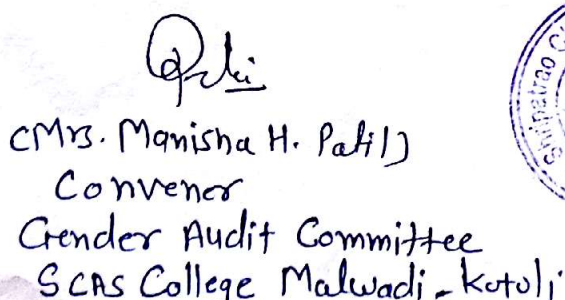 (Mrs. Manisha H. Patil)
Convener
Gender Audit Committee
SCAS College Malwadi - Kotoli
Shripatrao